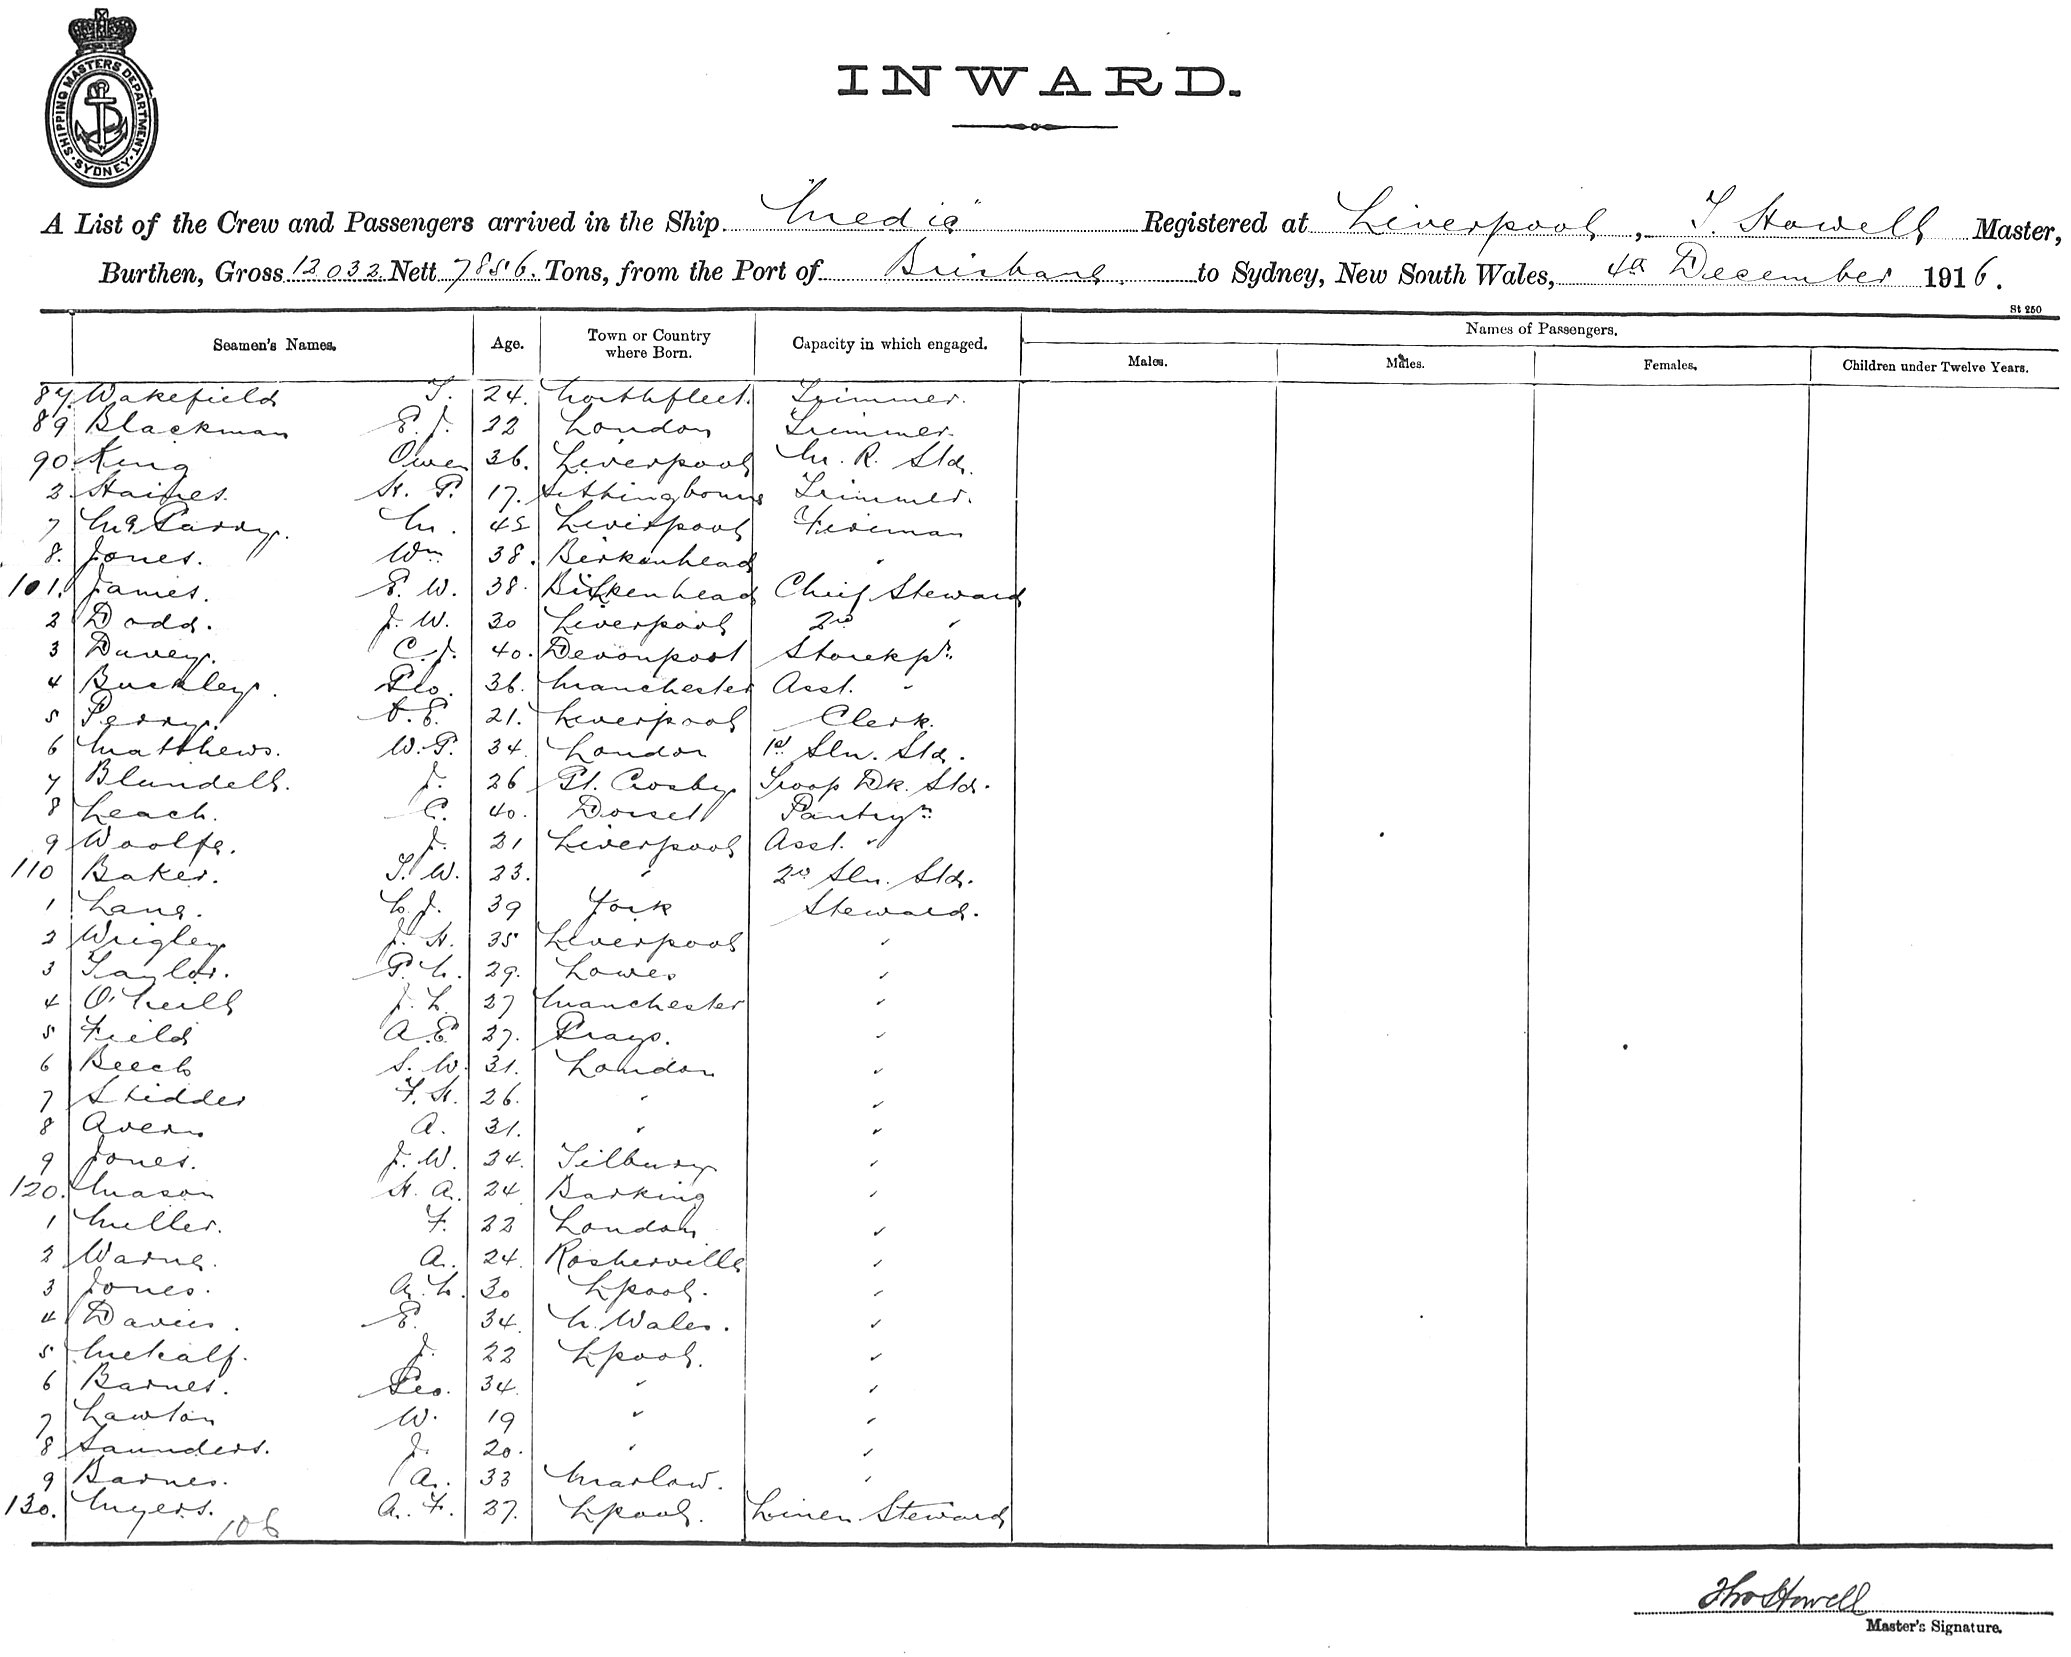 SHIPPING MASTERS DEPARTMENT · SYDNEY ·
INWARD.
A List of the Crew and Passengers arrived in the Ship "Medic" Registered at Liverpool, T. Howell Master,
Burthen, Gross 12032 Nett 7856. Tons, from the Port of Brisbane to Sydney, New South Wales, 4th December 1916.
St 250
Seamen's Names. Age. Town or Country where Born. Capacity in which engaged. Names of Passengers.
Males. Males. Females. Children under Twelve Years.
87. Wakefield T. 24. Northfleet. Trimmer.
89 Blackman E. J. 22 London Trimmer.
90. King Owen 36. Liverpool M. R. Std.
2. Haines. H. G. 17. Sittingbourne Trimmer.
7 McGarry. M. 45 Liverpool Fireman
8. Jones. Wm 38. Birkenhead "
101. James. E. W. 38. Birkenhead Chief Steward
2 Dodd. J. W. 30 Liverpool 2nd "
3 Davey. C. J. 40. Devonport Storekpr.
4 Buckley. Geo. 36. Manchester Asst. "
5 Perry. E. 21. Liverpool Clerk.
6 Matthews. W. G. 34. London 1st Sln. Std.
7 Blundell. J. 26 Gt. Crosby Troop Dk. Std.
8 Leach. C. 40. Dorset Pantrym.
9 Woolfe. J. 21 Liverpool Asst. "
110 Baker. T. W. 23. " 2nd Sln. Std.
1 Lane. J. 39 York Steward.
2 Wrigley J. H. 35 Liverpool "
3 Taylor. P. 29. Lowes "
4 O'Neill J. L. 27 Manchester "
5 Field A. E. 27. Grays. "
6 Beech S. W. 31. London "
7 Stidder F. H. 26. " "
8 Avern A. 31. " "
9 Jones. J. W. 24. Tilbury "
120. Mason H. A. 24 Barking "
1 Miller. F. 22 London "
2 Warne. A. 24. Rosherville "
3 Jones. A. 30 Lpool. "
4 Davies. E. 34. N. Wales. "
5 Metcalf. J. 22 Lpool. "
6 Barnes. Geo. 34. " "
7 Lawton W. 19 " "
8 Saunders. J. 20. " "
9 Barnes. A. 33 Marlow. "
130. Myers. A. F. 27. Lpool. Linen Steward
106
Tho Howell
Master's Signature.